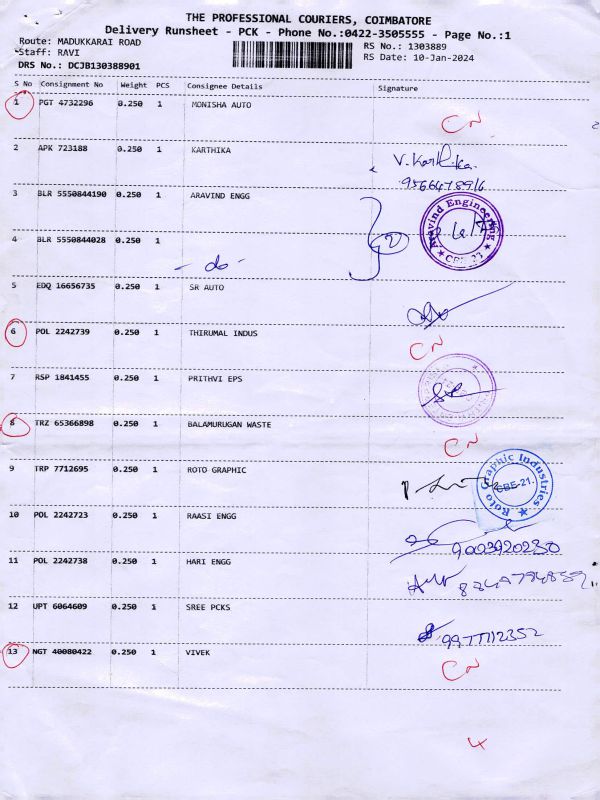 THE PROFESSIONAL COURIERS, COIMBATORE
Delivery Runsheet - PCK - Phone No.:0422-3505555 - Page No.:1
Route: MADUKKARAI ROAD
RS No.: 1303889
Staff: RAVI
RS Date: 10-Jan-2024
DRS No.: DCJB130388901
S No Consignment No Weight PCS Consignee Details Signature
1 PGT 4732296 0.250 1 MONISHA AUTO CN
2 APK 723188 0.250 1 KARTHIKA V. Karthika.
9566478916
3 BLR 5550844190 0.250 1 ARAVIND ENGG
Aravind Engineering
CBE-23
2
4 BLR 5550844028 0.250 1
- do -
5 EDQ 16656735 0.250 1 SR AUTO
6 POL 2242739 0.250 1 THIRUMAL INDUS CN
7 RSP 1841455 0.250 1 PRITHVI EPS
8 TRZ 65366898 0.250 1 BALAMURUGAN WASTE CN
9 TRP 7712695 0.250 1 ROTO GRAPHIC
Roto Graphic Industries
CBE-21.
10 POL 2242723 0.250 1 RAASI ENGG
9003920230
11 POL 2242738 0.250 1 HARI ENGG
12 UPT 6064609 0.250 1 SREE PCKS
9977112352
13 NGT 40080422 0.250 1 VIVEK CN
4